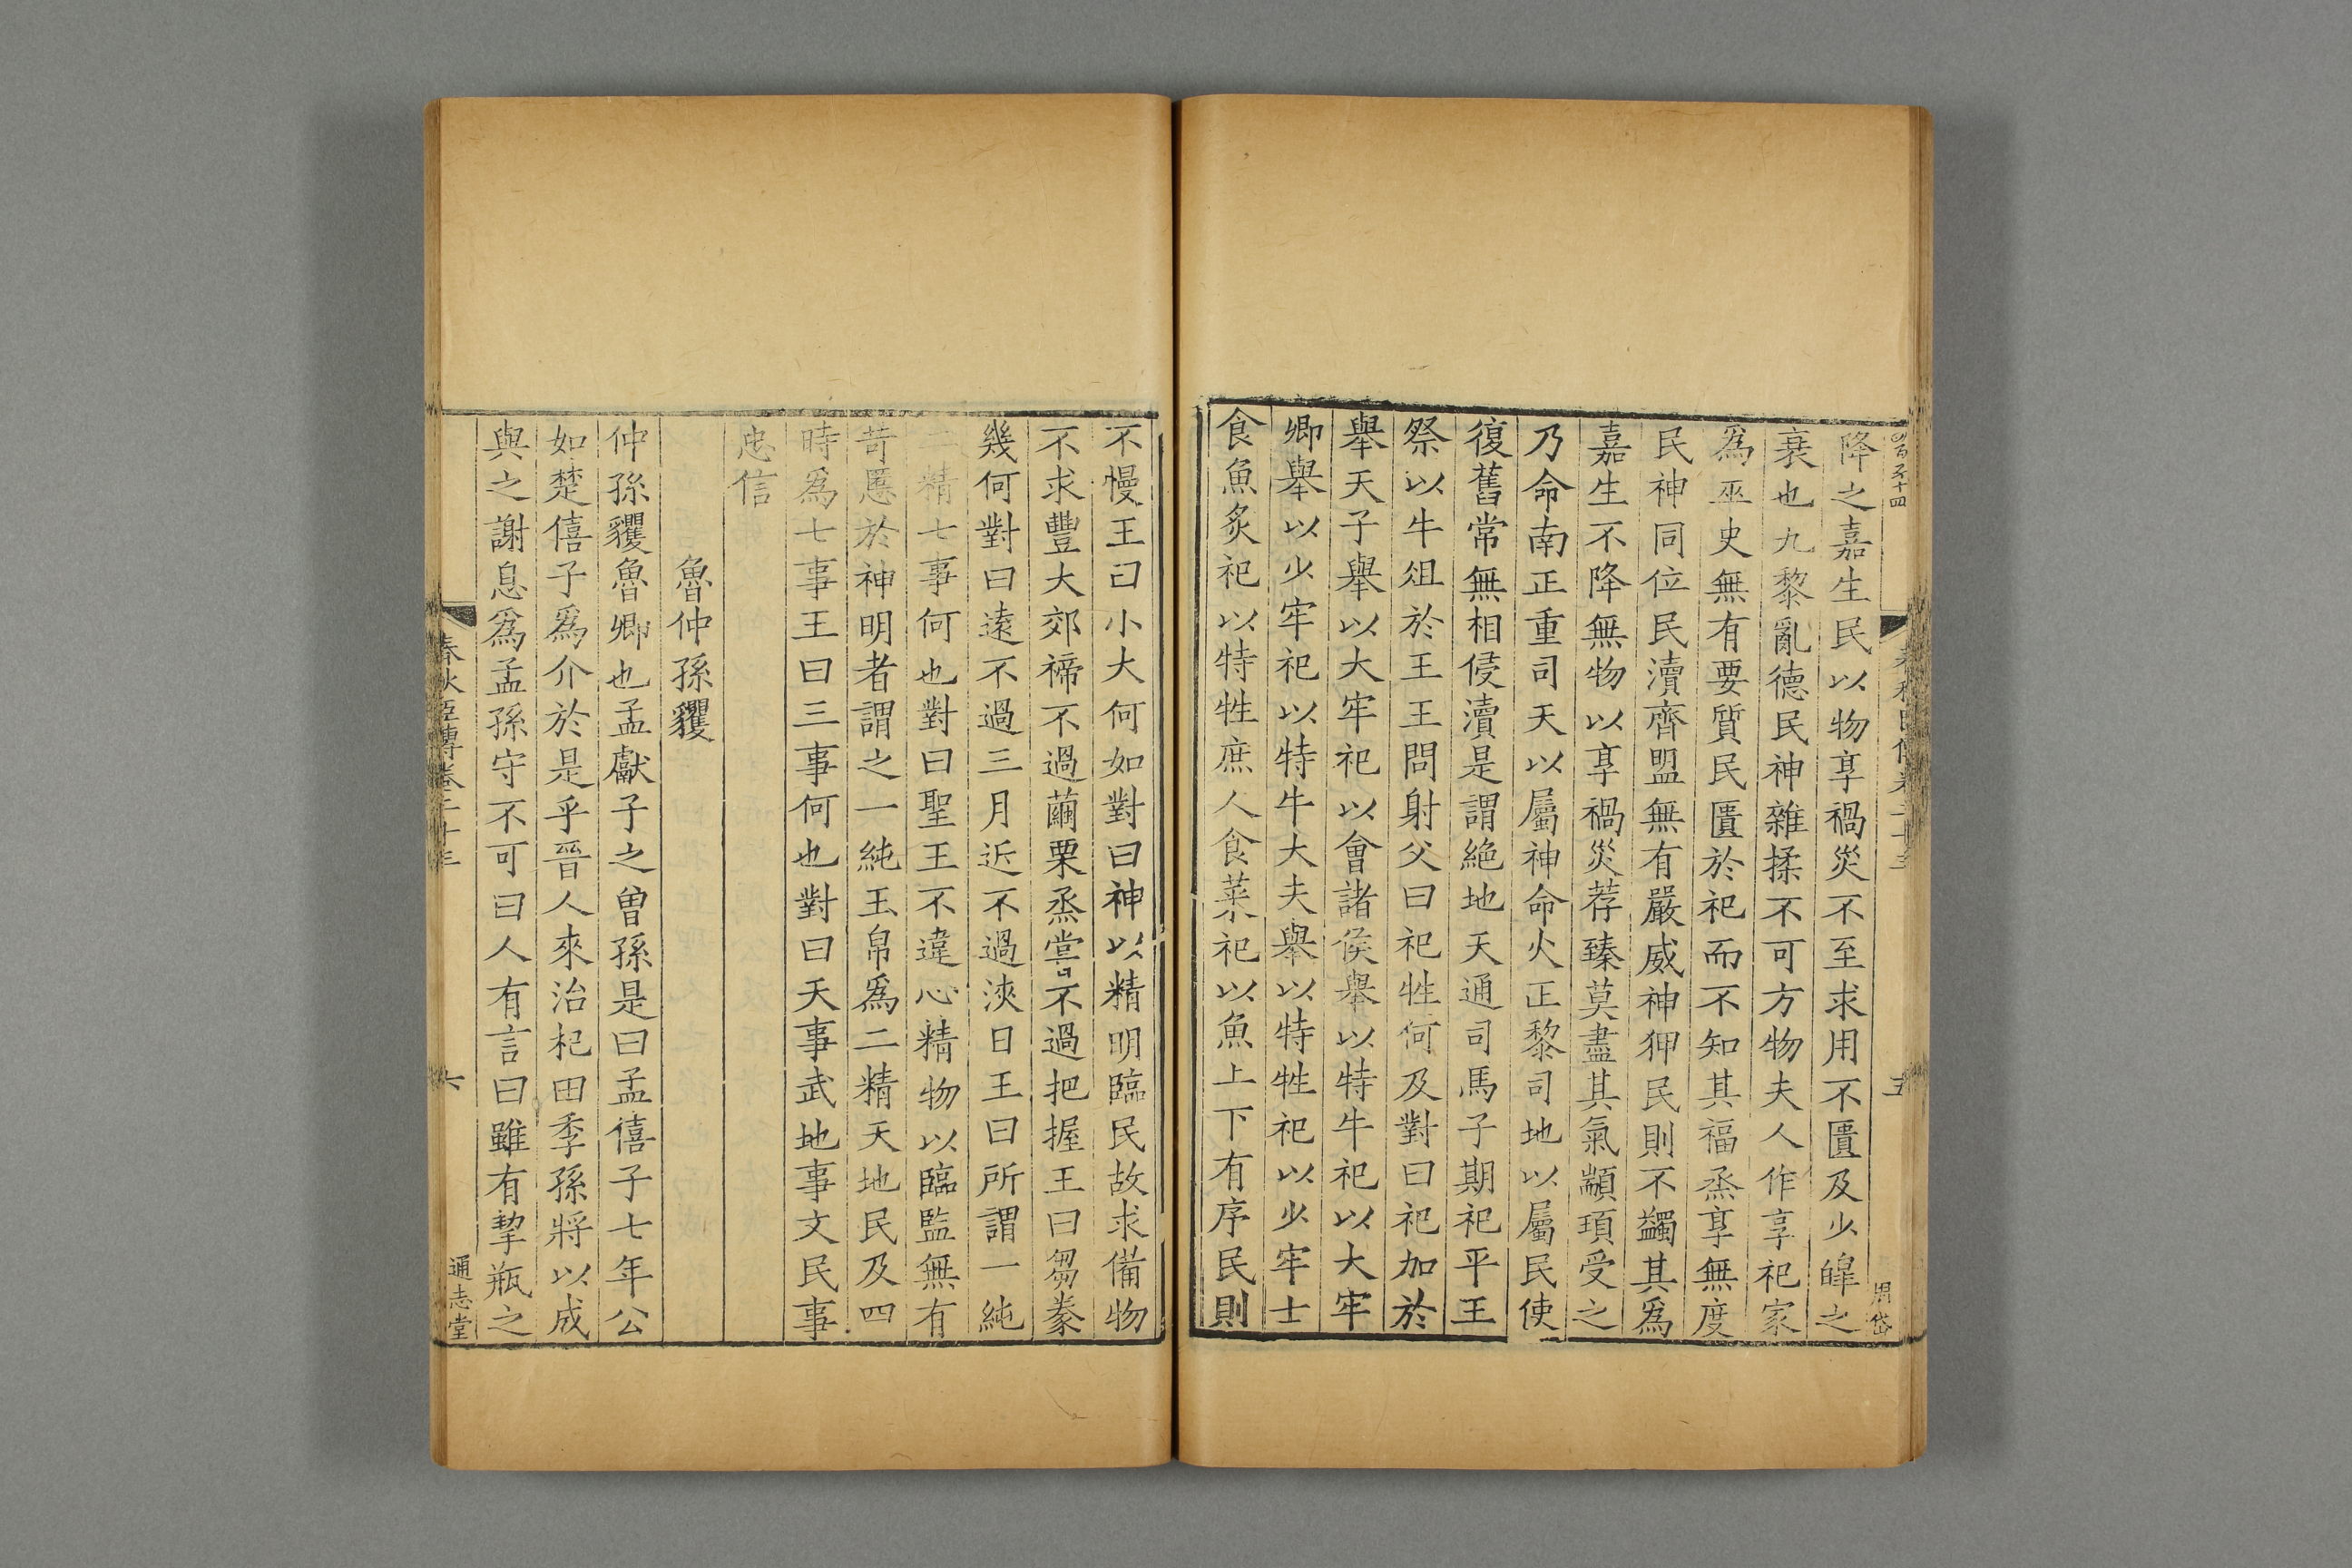 四百五十四
春秋臣傳卷二十三
五
周岱
降之嘉生民以物享禍災不至求用不匱及少皥之
衰也九黎亂德民神雜揉不可方物夫人作享祀家
爲巫史無有要質民匱於祀而不知其福烝享無度
民神同位民瀆齊盟無有嚴威神狎民則不蠲其爲
嘉生不降無物以享禍災荐臻莫盡其氣顓頊受之
乃命南正重司天以屬神命火正黎司地以屬民使
復舊常無相侵瀆是謂絶地天通司馬子期祀平王
祭以牛俎於王王問射父曰祀牲何及對曰祀加於
舉天子舉以大牢祀以會諸侯舉以特牛祀以大牢
卿舉以少牢祀以特牛大夫舉以特牲祀以少牢士
食魚炙祀以特牲庶人食菜祀以魚上下有序民則
不慢王曰小大何如對曰神以精明臨民故求備物
不求豐大郊禘不過繭栗烝嘗不過把握王曰芻豢
幾何對曰遠不過三月近不過浹日王曰所謂一純
精七事何也對曰聖王不違心精物以臨監無有
苛慝於神明者謂之一純玉帛爲二精天地民及四
時爲七事王曰三事何也對曰天事武地事文民事
忠信
魯仲孫貜
仲孫貜魯卿也孟獻子之曾孫是曰孟僖子七年公
如楚僖子爲介於是乎晉人來治杞田季孫將以成
與之謝息爲孟孫守不可曰人有言曰雖有挈瓶之
春秋臣傳卷二十三
六
通志堂